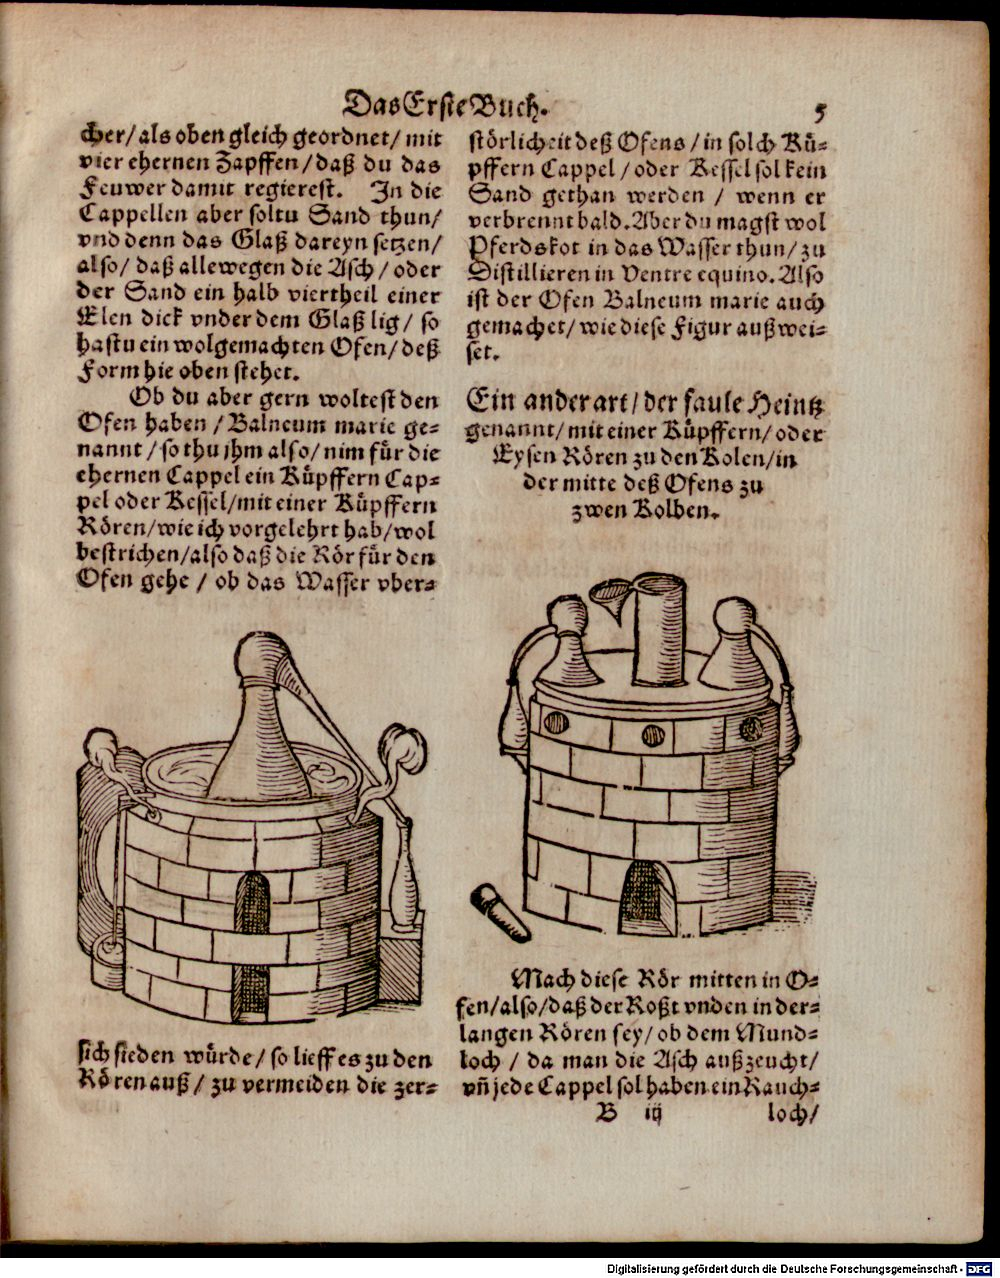 Das Erste Buch. 5
cher/als oben gleich geordnet/mit
vier ehernen Zapffen/daß du das
Feuwer damit regierest. In die
Cappellen aber soltu Sand thun/
vnd denn das Glaß dareyn setzen/
also/daß allewegen die Asch/oder
der Sand ein halb viertheil einer
Elen dick vnder dem Glaß lig/so
hastu ein wolgemachten Ofen/deß
Form hie oben stehet.
Ob du aber gern woltest den
Ofen haben/Balneum marie ge=
nannt/so thu jhm also/nim für die
ehernen Cappel ein Küpffern Cap=
pel oder Kessel/mit einer Küpffern
Rören/wie ich vorgelehrt hab/wol
bestrichen/also daß die Rör für den
Ofen gehe/ob das Wasser vber=
sich sieden würde/so lieff es zu den
Rören auß/zu vermeiden die zer=
störlicheit deß Ofens/in solch Kü=
pffern Cappel/oder Kessel sol kein
Sand gethan werden/wenn er
verbrennt bald. Aber du magst wol
Pferdskot in das Wasser thun/zu
Distillieren in Ventre equino. Also
ist der Ofen Balneum marie auch
gemachet/wie diese Figur außwei=
set.
Ein ander art/der faule Heintz
genannt/mit einer Küpffern/oder
Eysen Rören zu den Kolen/in
der mitte deß Ofens zu
zwen Kolben.
Mach diese Rör mitten in O=
fen/also/daß der Roßt vnden in der=
langen Rören sey/ob dem Mund=
loch/da man die Asch außzeucht/
vñ jede Cappel sol haben ein Rauch=
B iij loch/
Digitalisierung gefördert durch die Deutsche Forschungsgemeinschaft - DFG